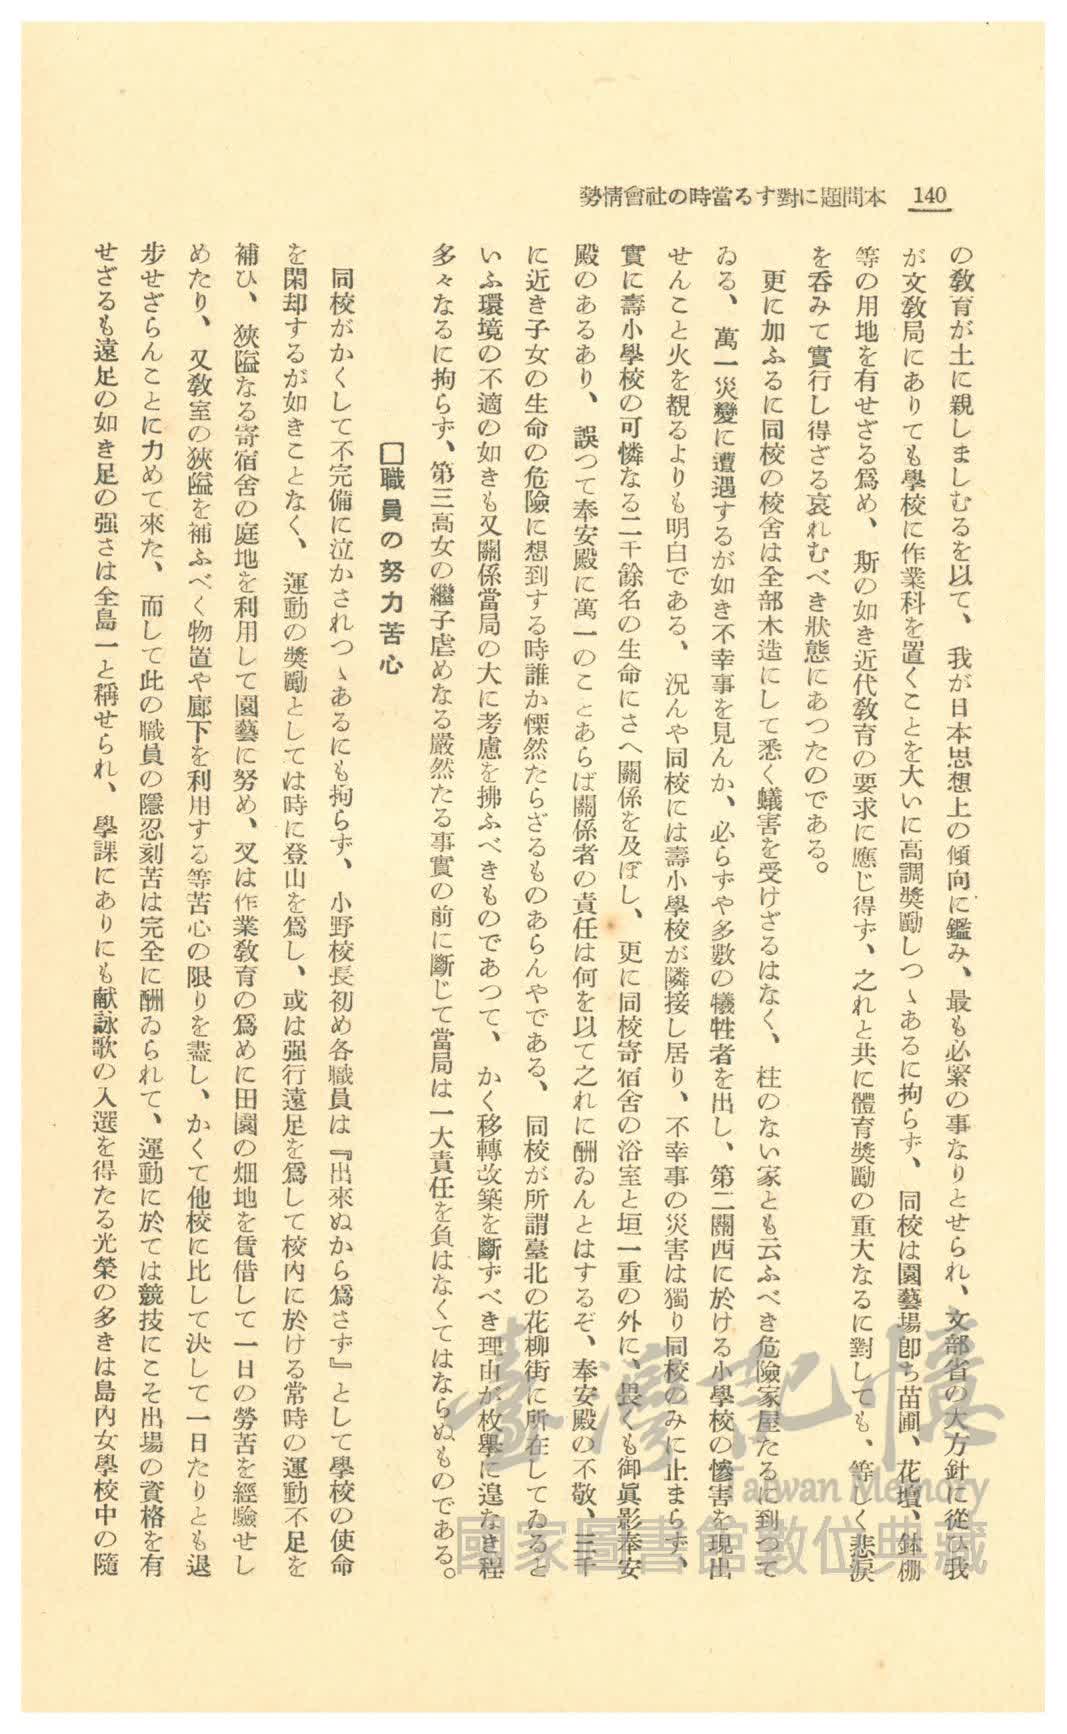 140 本問題に對する當時の社會情勢
の敎育が土に親しましむるを以て、我が日本思想上の傾向に鑑み、最も必緊の事なりとせられ、文部省の大方針に從ひ我
が文敎局にありても學校に作業科を置くことを大いに高調奬勵しつゝあるに拘らず、同校は園藝場卽ち苗圃、花壇、鉢棚
等の用地を有せざる爲め、斯の如き近代敎育の要求に應じ得ず、之れと共に體育奬勵の重大なるに對しても、等しく悲淚
を呑みて實行し得ざる哀れむべき狀態にあつたのである。
更に加ふるに同校の校舍は全部木造にして悉く蟻害を受けざるはなく、柱のない家とも云ふべき危險家屋たるに到つて
ゐる、萬一災變に遭遇するが如き不幸事を見んか、必らずや多數の犧牲者を出し、第二關西に於ける小學校の慘害を現出
せんこと火を覩るよりも明白である、況んや同校には壽小學校が隣接し居り、不幸事の災害は獨り同校のみに止まらず、
實に壽小學校の可憐なる二千餘名の生命にさへ關係を及ぼし、更に同校寄宿舍の浴室と垣一重の外に、畏くも御眞影奉安
殿のあるあり、誤つて奉安殿に萬一のことあらば關係者の責任は何を以て之れに酬ゐんとはするぞ、奉安殿の不敬、三千
に近き子女の生命の危險に想到する時誰か慄然たらざるものあらんやである、同校が所謂臺北の花柳街に所在してゐると
いふ環境の不適の如きも又關係當局の大に考慮を拂ふべきものであつて、かく移轉改築を斷ずべき理由が枚擧に遑なき程
多々なるに拘らず、第三高女の繼子虐めなる嚴然たる事實の前に斷じて當局は一大責任を負はなくてはならぬものである。
□職員の努力苦心
同校がかくして不完備に泣かされつゝあるにも拘らず、小野校長初め各職員は『出來ぬから爲さず』として學校の使命
を閑却するが如きことなく、運動の奬勵としては時に登山を爲し、或は强行遠足を爲して校內に於ける常時の運動不足を
補ひ、狹隘なる寄宿舍の庭地を利用して園藝に努め、又は作業敎育の爲めに田園の畑地を賃借して一日の勞苦を經驗せし
めたり、又敎室の狹隘を補ふべく物置や廊下を利用する等苦心の限りを盡し、かくて他校に比して決して一日たりとも退
步せざらんことに力めて來た、而して此の職員の隱忍刻苦は完全に酬ゐられて、運動に於ては競技にこそ出場の資格を有
せざるも遠足の如き足の强さは全島一と稱せられ、學課にありにも献詠歌の入選を得たる光榮の多きは島內女學校中の隨
臺灣記憶
Taiwan Memory
國家圖書館數位典藏